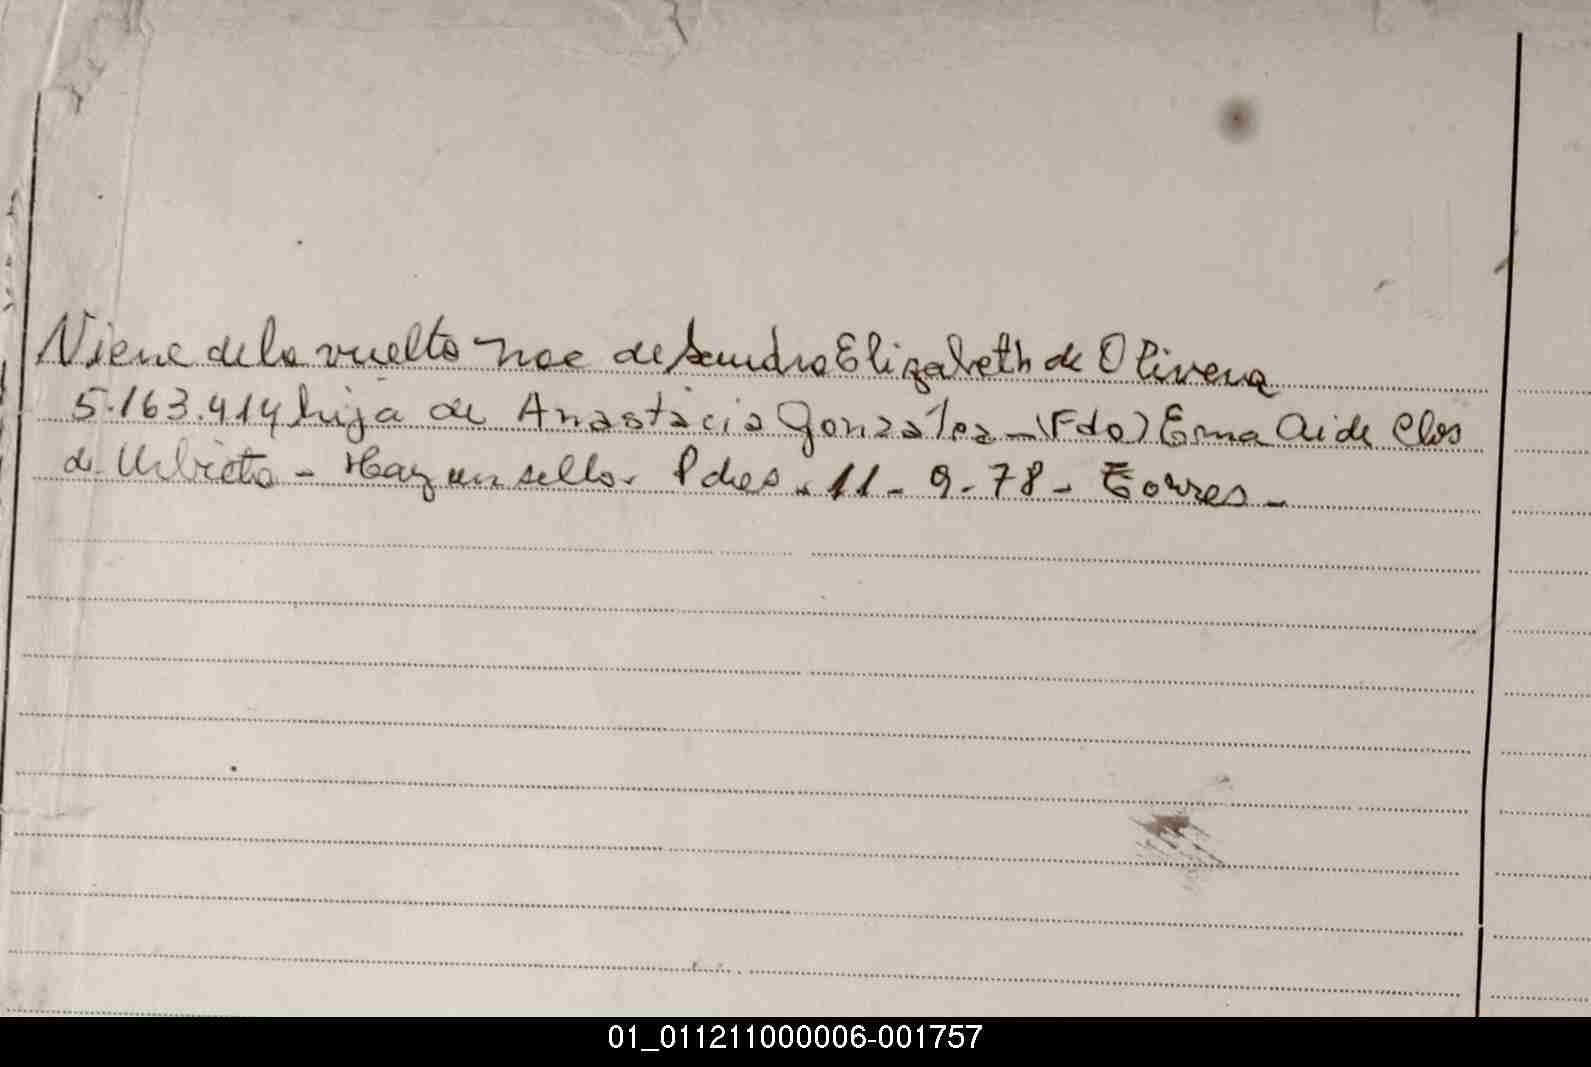 Viene de la vuelta noe de Sandra Elizabeth de Olivera
5.163.414 hija de Anastacia Gonzalez - (Fdo) Erna Aide Clos
de Urbieta - Hay un sello. Pdes. 11 - 9 - 78 - Torres -
01_011211000006-001757